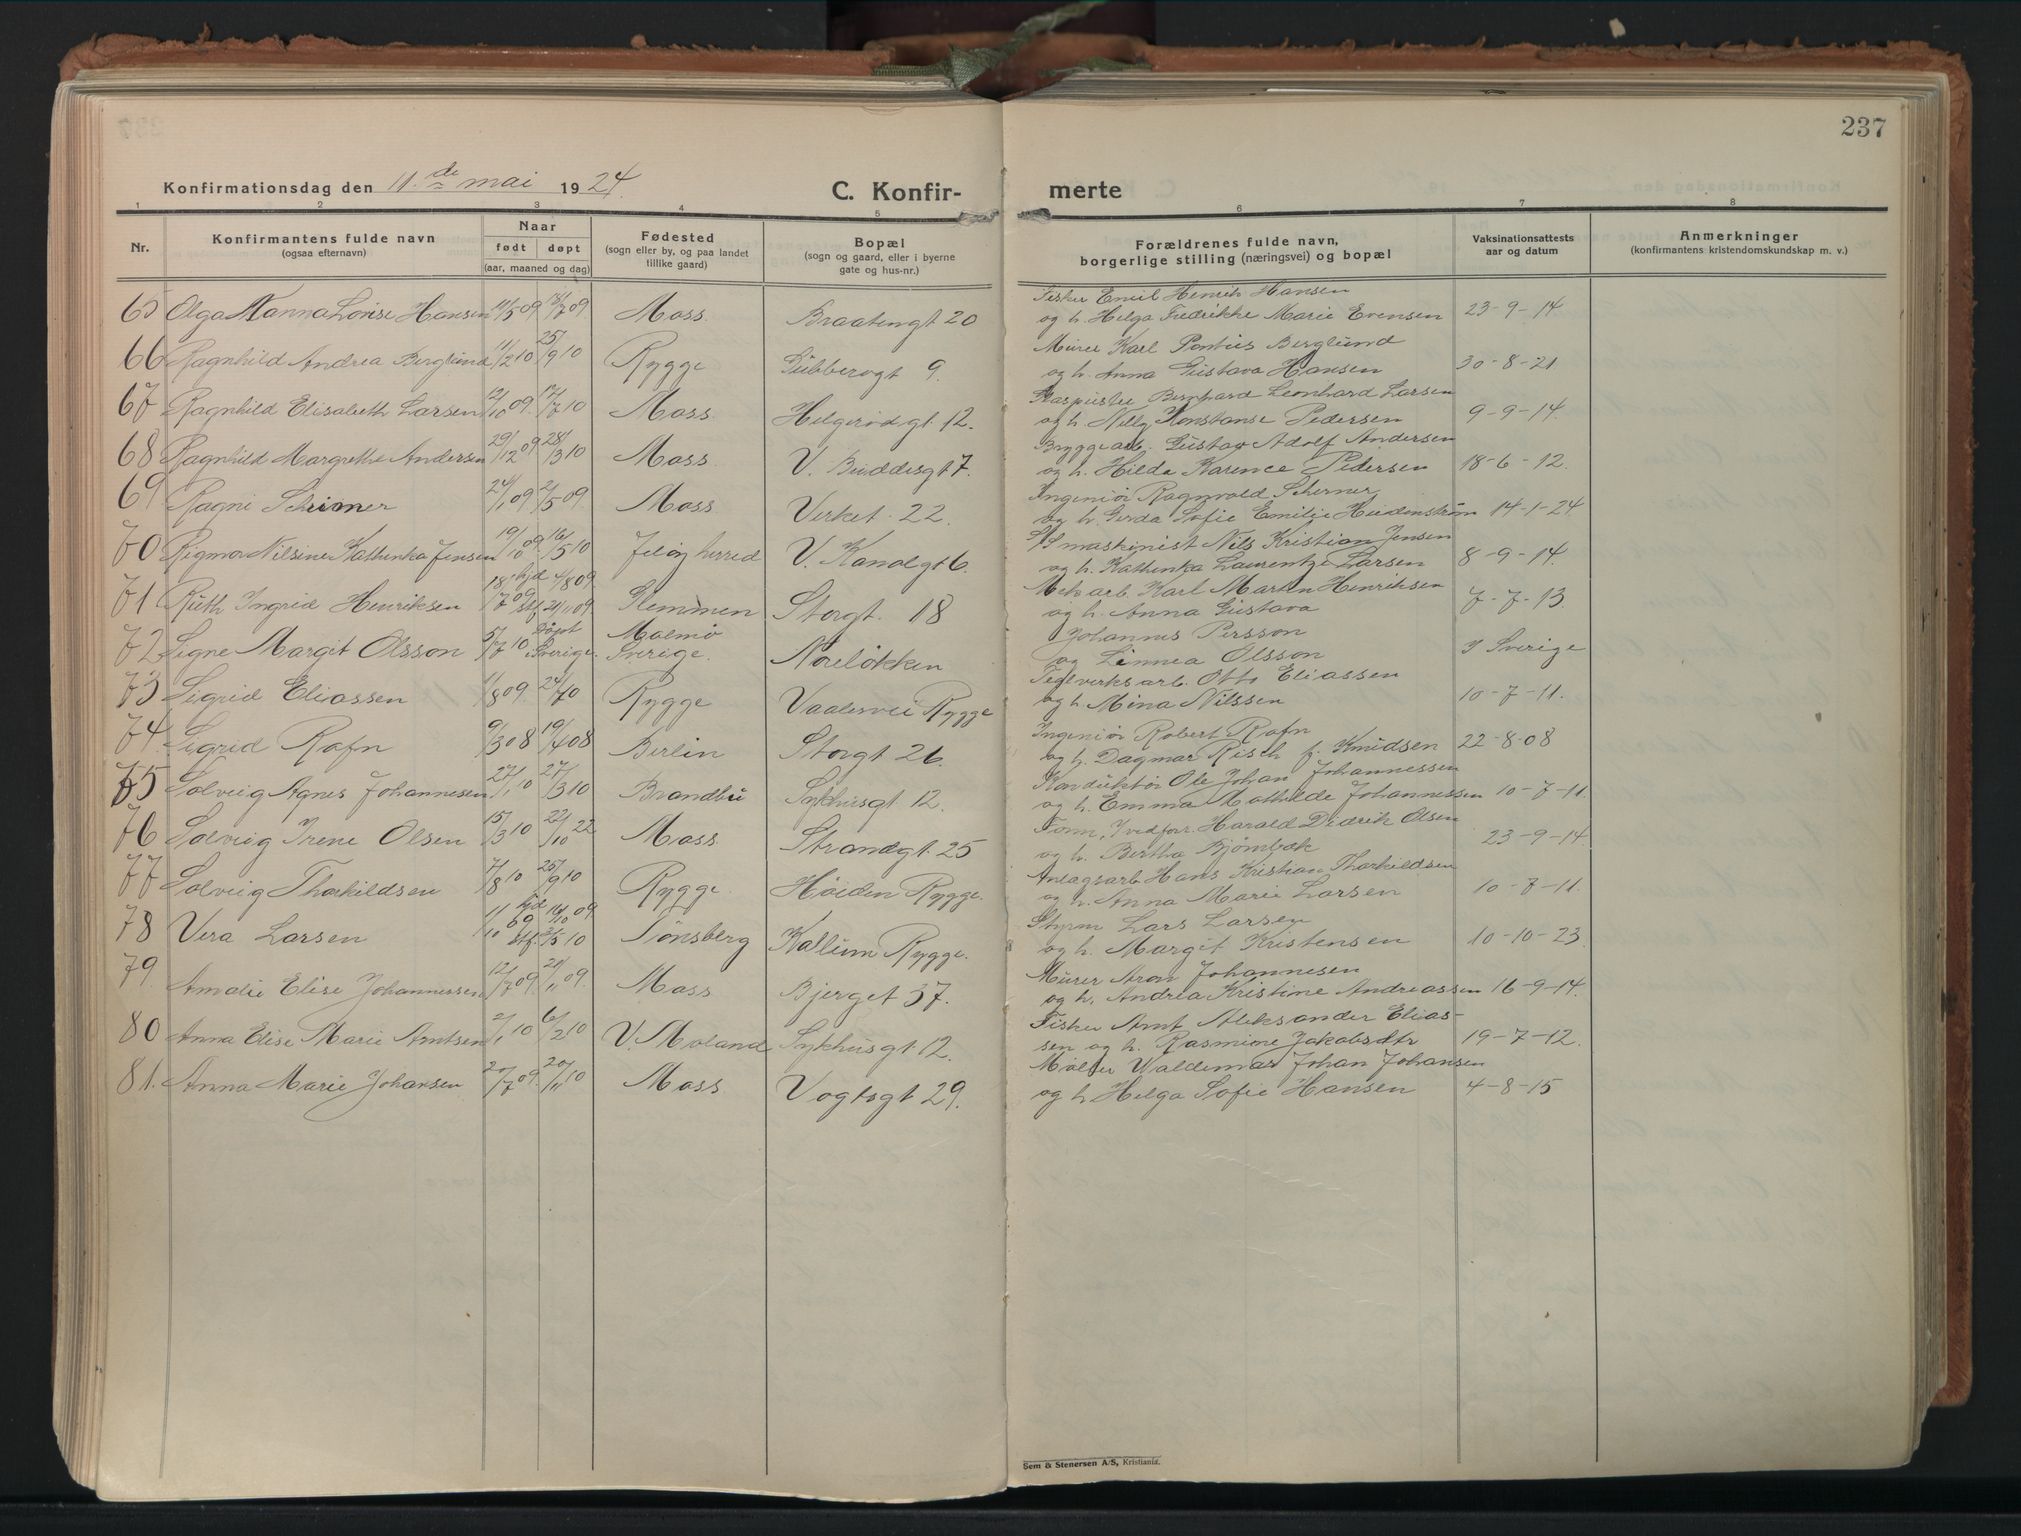 237
Konfirmationsdag den 11.de mai 1924.
C. Konfirmerte
1 2 3 4 5 6 7 8
Nr.
Konfirmantens fulde navn
(ogsaa efternavn)
Naar
født døpt
(aar, maaned og dag)
Fødested
(sogn eller by, og paa landet
tillike gaard)
Bopæl
(sogn og gaard, eller i byerne
gate og hus-nr.)
Forældrenes fulde navn,
borgerlige stilling (næringsvei) og bopæl
Vaksinationsattests
aar og datum
Anmerkninger
(konfirmantens kristendomskundskap m. v.)
65 Olga Nanna Lovise Hansen 11/5 09 18/7 09. Moss. Braatengt 20 Fisker Emil Henrik Hansen
og h. Helga Fredrikke Marie Evensen 23-9-14
66 Ragnhild Andrea Berglund 11/2 10 25/9 10 Rygge Lübberogt 9. Murer Karl Pontus Berglund
og h. Anna Gustava Hansen 30-8-21
67 Ragnhild Elisabeth Larsen 12/10 09. 17/7 10 Moss. Helgerødgt 12. Glaspuster Bernhard Leonhard Larsen
og h. Nelly Konstanse Pedersen 9-9-14.
68 Ragnhild Margrethe Andersen 29/12 09 28/3 10 Moss. V. Buddesgt 7. Bryggearb. Gustav Adolf Andersen
og h. Hilda Karence Pedersen 18-6-12.
69 Ragni Scherner 24/1 09 2/5 09. Moss. Verket 22. Ingeniør Ragnvald Scherner
og h. Gerda Sofie Emilie Heidenstrøm 14-1-24
70 Rigmor Nilsine Kathinka Jensen 19/10 09. 16/5 10 Jeløy herred V. Kanalgt 6. S/S maskinist Nils Kristian Jensen
og h. Kathinka Laurentze Larsen 8-9-14.
71 Ruth Ingrid Henriksen 18/7 09 hjd 4/8 09. stf. 21/11 09. Glemmen Storgt. 18 Mek arb. Karl Martin Henriksen
og h. Anna Gustava 7-7-13.
72 Signe Margit Olsson 5/7 10 Döpt i Sverige. Malmö Sverige. Noreløkken Johannes Persson
og Linnea Olsson I Sverige
73 Sigrid Eliassen 1/8 09. 24/4 10 Rygge Vaalesvei Rygge Teglverksarb. Otto Eliassen
og h. Mina Nilssen 10-7-11.
74 Sigrid Rafn 9/3 08 19/4 08 Berlin Storgt 26. Ingeniør Robert Rafn
og h. Dagmar Risch f. Knudsen 22-8-08
75 Solveig Agnes Johannesen 27/1 10 27/3 10 Brandbu Sykhusgt 12. Konduktør Ole Johan Johannessen
og h. Emma Mathilde Johannessen 10-7-11.
76 Solveig Irene Olsen 15/3 10 22/10 22 Moss Strandgt 25 Form. I vedforr. Harald Didrik Olsen
og h. Bertha Bjørnbæk 23-9-14.
77 Solveig Thorkildsen 7/8 10 25/9 10 Rygge. Høiden Rygge. Anlagsarb Hans Kristian Thorkildsen
og h. Anna Marie Larsen 10-7-11.
78 Vera Larsen 11/10 09 hjd 16/10 09. stf. 3/5 10 Tønsberg Kallum Rygge. Styrm Lars Larsen
og h. Margit Kristensen 10-10-23.
79. Amalie Elise Johannessen 12/7 09. 21/11 09. Moss Bjerget 37. Murer Aron Johannesen
og h. Andrea Kristine Andreassen 16-9-14.
80 Anna Elise Marie Arntsen 2/1 10 6/2 10 V. Moland Sykhusgt 12. Fisker Arnt Aleksander Elias-
sen og h. Rasmine Jakobsdtr 19-7-12.
81. Anna Marie Johansen 20/7 09. 20/11 10 Moss Vogtsgt 29. Møller Valdemar Johan Johansen
og h Helga Sofie Hansen 4-8-15
Sem & Stenersen A/S, Kristiania.